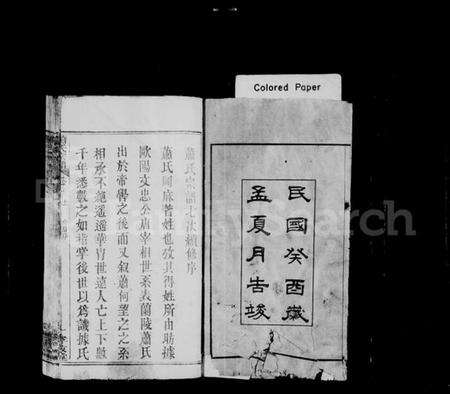 Colored Paper
民國癸酉歲
孟夏月告竣
蕭氏宗譜七次續修序
蕭氏同族著姓也攷其得姓所由昉據
歐陽文忠公唐宰相世系表蘭陵蕭氏
出於帝嚳之後而又叙蕭何望之之系
相承不絕遙遙華胄世遠人亡上下數
千年悉數之如指掌後世以爲譏據氏